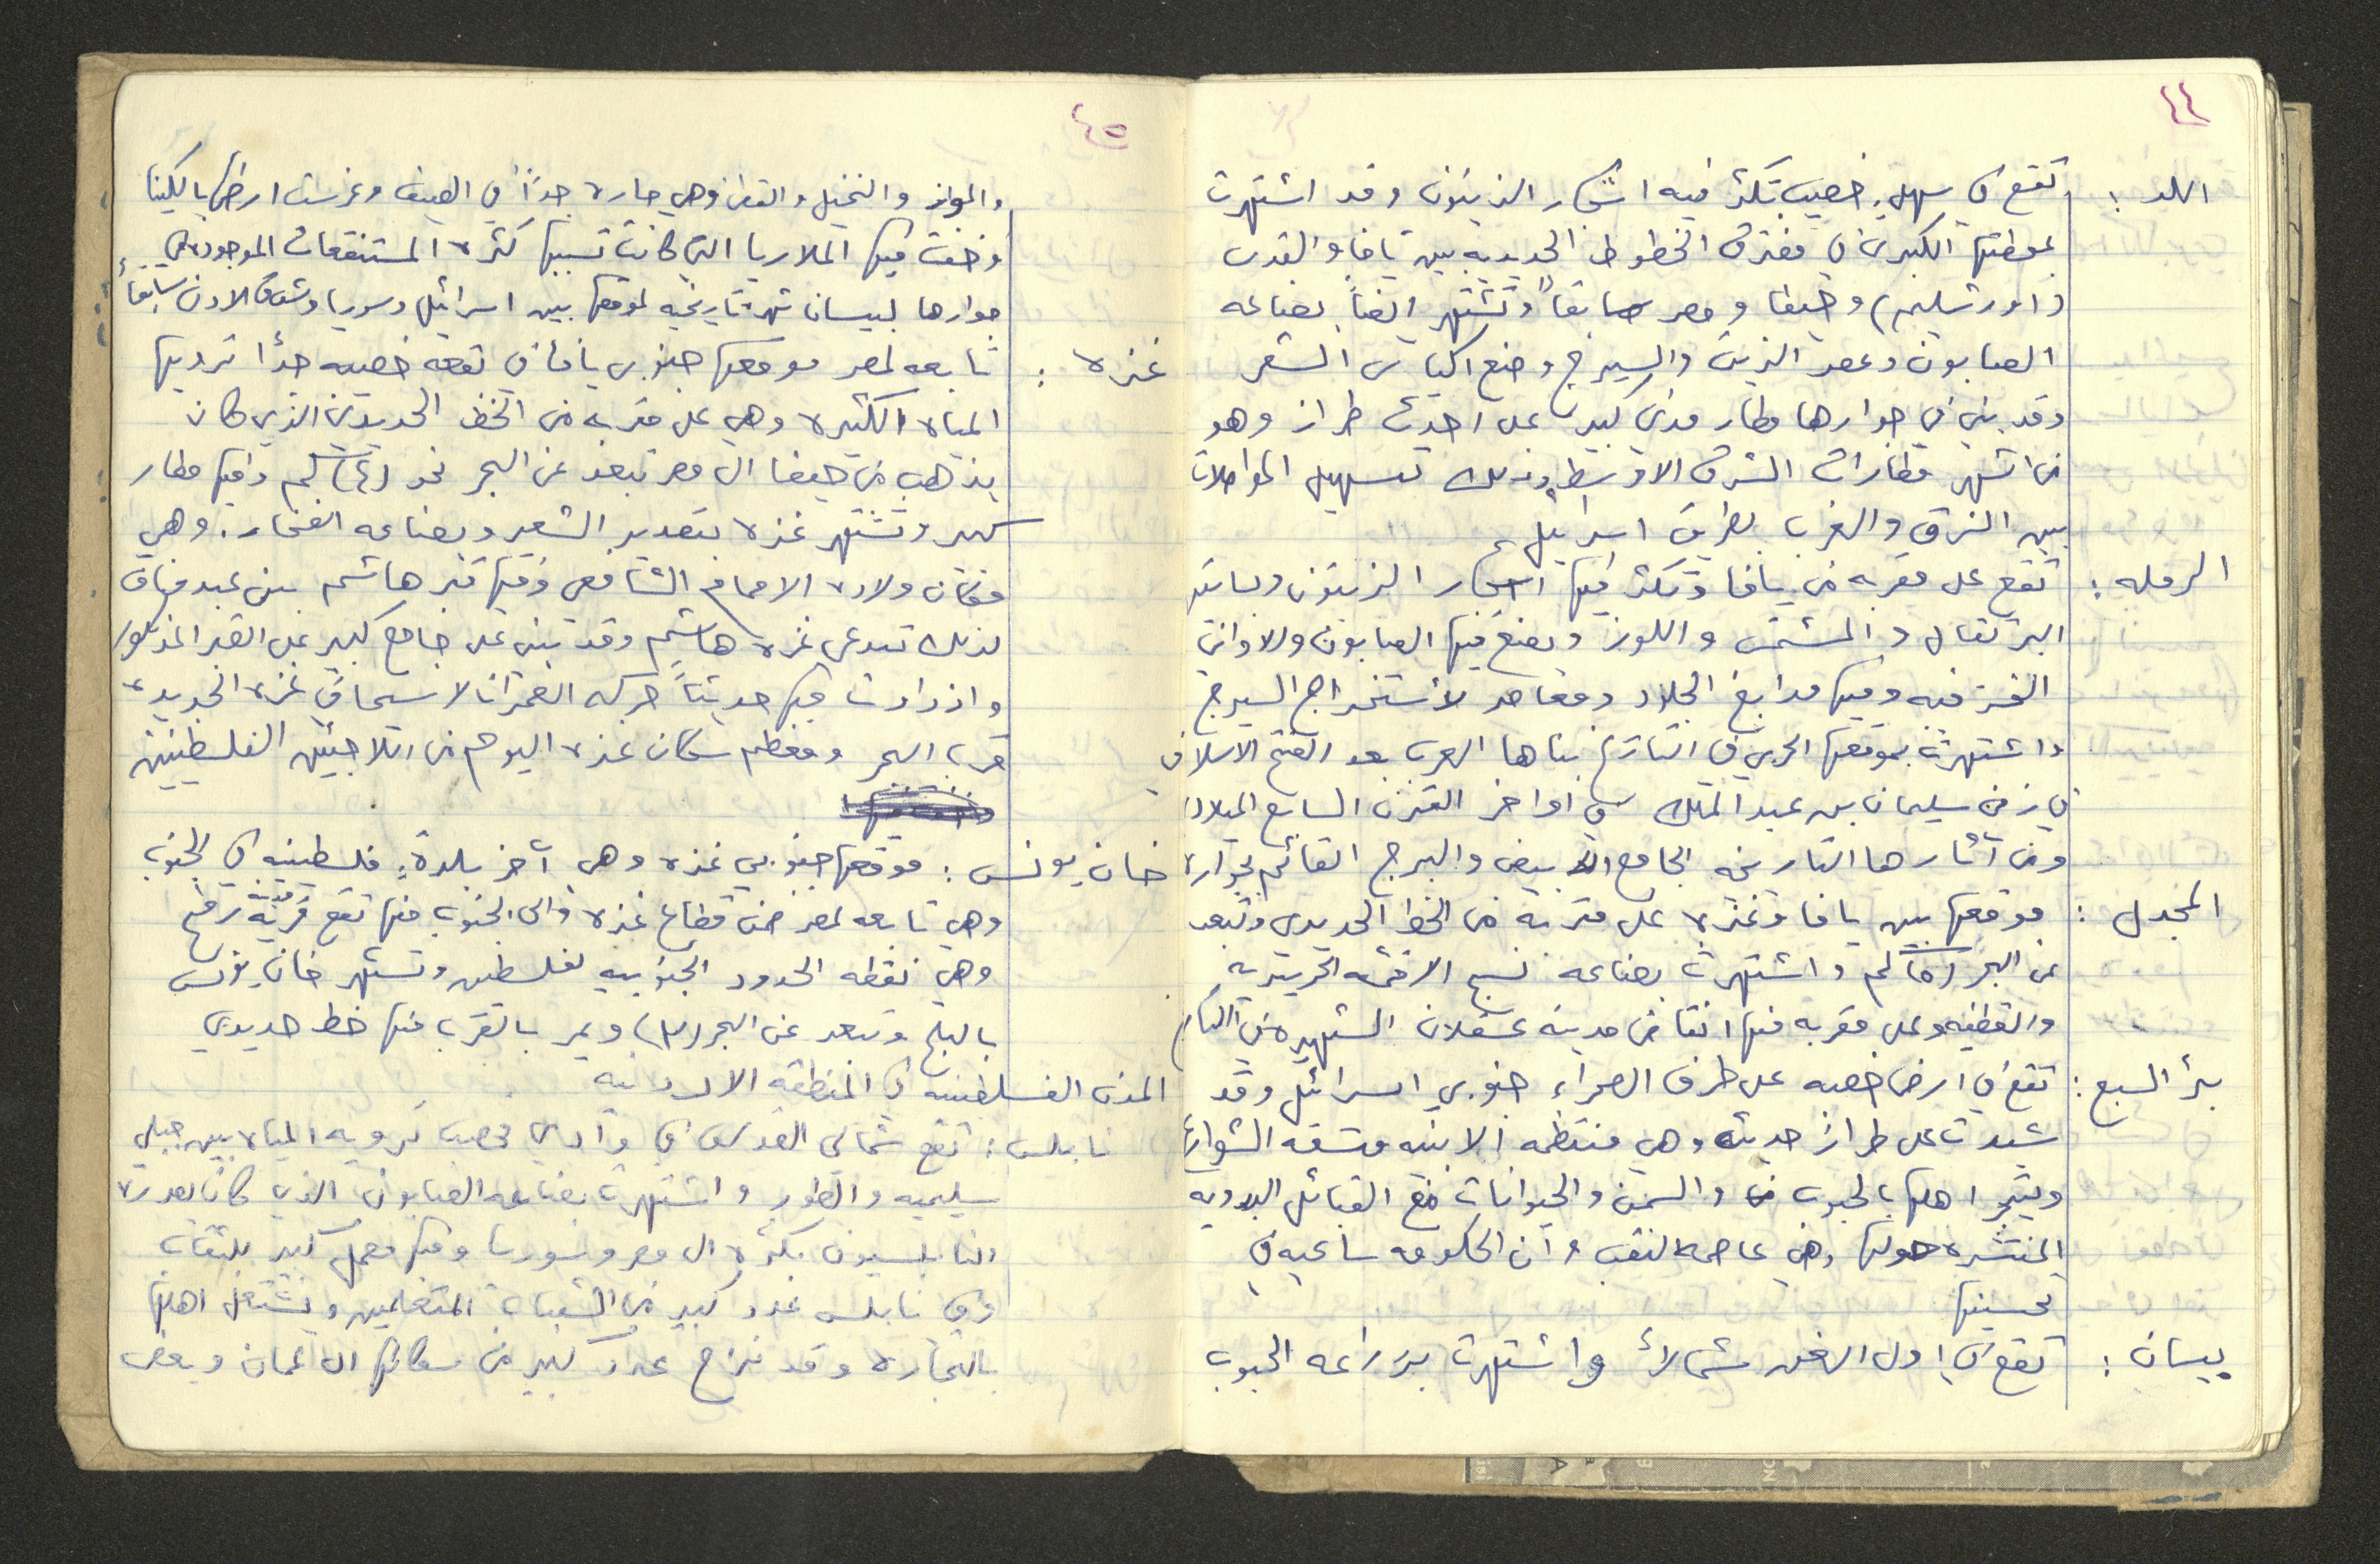 ٤٤
اللد : تقع في سهل خصيب تكثر فيه اشجار الزيتون وقد اشتهرت
بمحطتها الكبرى في مفترق الخطوط الحديديه بين يافا والقدس
(اورشليم) وحيفا ومصر سابقاً وتشتهر ايضاً بصناعه
الصابون وعصر الزيت والسيرج وصنع اكياس الشعر
وقد بني في جوارها مطار مدني كبير على احدث طراز وهو
من اشهر مطارات الشرق الاوسط وذلك لتسهيل المواصلات
بين الشرق والغرب بطريق اسرائيل
الرمله : تقع على مقربه من يافا وتكثر فيها اشجار الزيتون وبساتين
البرتقال والمشمش واللوز ويصنع فيها الصابون والاواني
الخزفيه وفيها مدابغ الجلود ومعاصر لأستخراج السيرج
واشتهرت بموقعها الحربي في التاريخ بناها العرب بعد الفتح الاسلامي
في زمن سليمان بن عبد الملك في اواخر القرن السابع الميلادي
ومن آثارها التاريخه الجامع الابيض والبرج القائم بجواره
المجدل : موقعها بين يافا وغزه على مقربة من الخط الحديدي وتبعد
عن البحر (٥) كم واشتهرت بصناعه نسج الاقمشه الحريريه
والقطنيه وعلى مقربه منها انقاض مدينه عسقلان الشهيره في التاريخ
بئر السبع : تقع في ارض خصبه على طرف الصحراء جنوبي اسرائيل وقد
شيدت على طراز حديث وهي منتظمه الابنيه ومتسقه الشوارع
ويتجر اهلها بالحبوب والسمن والحيوانات مع القبائل البدويه
المنتشره حولها وهي عاصمه النقب وان الحكومه ساعيه في
تحسينها
بيسان : تقع في اول الغور شمالاً واشتهرت بزراعه الحبوب
٤٥
والموز والنخيل والقطن وهي حاره جداً في الصيف وغرست ارضها بالكينا
وخفت فيها الملاريا التي كانت تسببها كثره المستنقعات الموجوده في
جوارها لبيسان شهره تاريخيه لموقعها بين اسرائيل وسوريا وشرق الاردن سابقاً
غزه : تابعه لمصر موقعها جنوبي يافا في بقعه خصبه جداً ترويها
المياه الكثيره وهي على مقربه من الخط الحديدي الذي كان
يذهب من حيفا الى مصر تبعد عن البحر نحو (٤) كم وفيها مطار
كبير وتشتهر غزه بتصدير الشعير وبصناعه الفخار. وهي
مكان ولاده الامام الشافعي وفيها قبر هاشم بن عبد مناف
لذلك تدعى غزه هاشم وقد بني على جامع كبير على القبر المذكور
وازدادت فيها حديثاً حركه العمران لا سيما في غزه الجديده
قرب البحر ومعظم سكان غزه اليوم من اللاجئين الفلسطينين
خان يونس : موقعها جنوبي غزه وهي آخر بلدة فلسطينيه في الجنوب
وهي تابعه لمصر ضمن قطاع غزه والى الجنوب منها تقع قرية رفح
وهي نقطه الحدود الجنوبيه لفلسطين وتشتهر خان يونس
بالبلح وتبعد عن البحر (٣) ويمر بالقرب منها خط حديدي
المدن الفلسطينيه في المنطقه الاردنيه
نابلس : تقع شمالي القدس في وادي خصب ترويه المياه بين جبلي
سليميه والطور واشتهرت بصناعه الصابون الذي كان يصدره
النابلسيون بكثره الى مصر وسوريا وفيها معمل كبير للثقاب
وفي نابلس عدد كبير من الشباب المتعلمين ويشتغل اهلها
بالتجاره وقد نزح عدد كبير من سكانها الى عمان وبعض